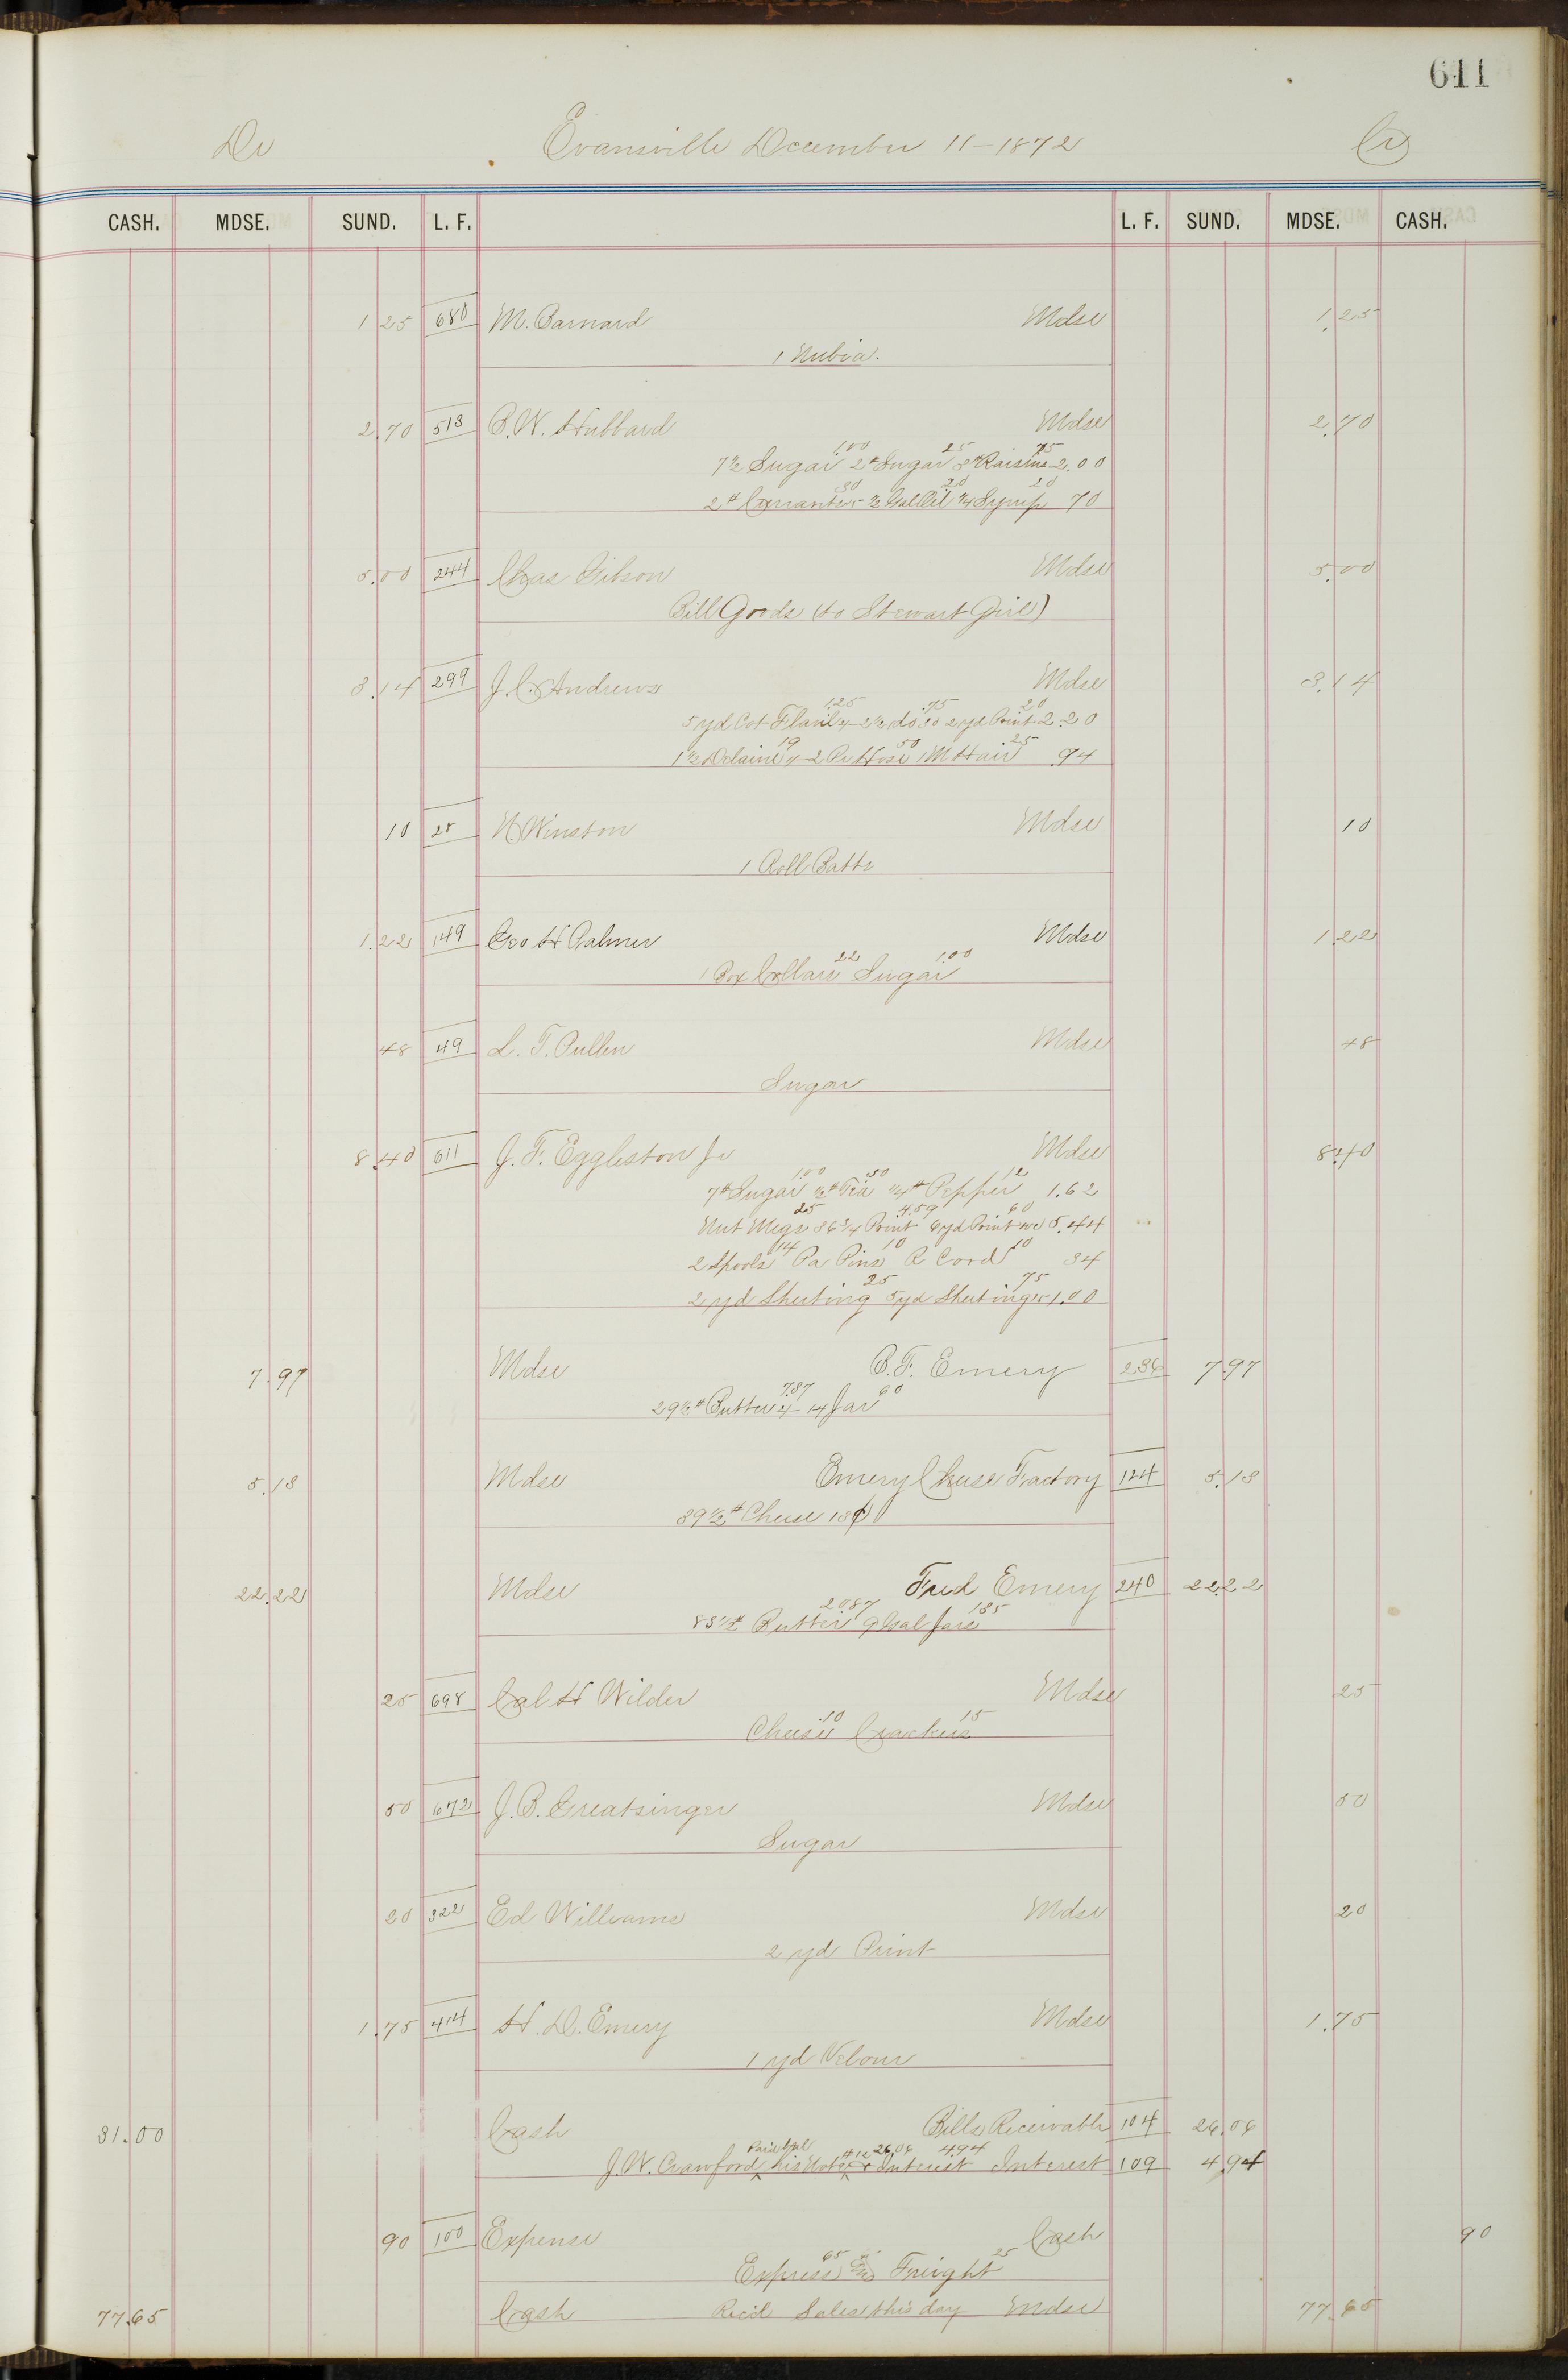 611
Dr Evansville December 11-1872 Cr
CASH. MDSE. SUND. L. F. L. F. SUND. MDSE. CASH.
1.25 680 M. Barnard Mdse 1.25
1 Nubia.
2.70 513 B. W. Hubbard Mdse 2.70
1.00 25 75
7½ Sugar 2# Sugar 3# Raisins 2.00
30 20 20
2# Currants 15 ½ Gal Oil ¼ Syrup 70
5.00 244 Chas Gibson Mdse 5.00
Bill Goods (to Stewart Girl)
3.14 299 J. C. Andrews Mdse 3.14
1.25 .75 20
5 yd Cot Flanl 2/ 2½ do 30 2 yd Print 2.20
19 50 25
1½ Delaine 2 Pr Hose 1 M Hair .94
10 25 N. Winston Mdse 10
1 Roll Batts
1.22 149 Geo H Palmer Mdse 1.22
22 1.00
1 Box Collars Sugar
48 49 L. T. Pullen Mdse 48
Sugar
8.40 611 J. F. Eggleston Jr Mdse 8.40
1.00 50 12
7# Sugar ½# Tea ¼# Pepper 1.62
25 4.59 60
Nut Megs 36¾ Print 6 yd Print 5.44
14 10 10
2 Spools Pa Pins R Cord 34
25 75
2 yd Sheeting 5 yd Sheeting 15 1.00
7.97 Mdse B. F. Emery 236 7.97
7.37 60
29½# Butter 2/- 14 Jar
5.13 Mdse Emery Cheese Factory 124 5.13
39½# Cheese 13¢
22.22 Mdse Fred Emery 240 22.22
20.87 1.35
83½# Butter 9 Gal Jars
25 698 Cal H Wilder Mdse 25
.10 15
Cheese Crackers
50 672 J. B. Greatsinger Mdse 50
Sugar
20 322 Ed Williams Mdse 20
2 yd Print
1.75 414 H. D. Emery Mdse 1.75
1 yd Velour
31.00 Cash Bills Receivable 104 26.06
Paid bal 26.06 4.94
J. W. Crawford his Note & Interest Interest 109 4.94
90 100 Expense Cash 90
65 25
Express Freight
77.65 Cash Rec'd Sales this day Mdse 77.65